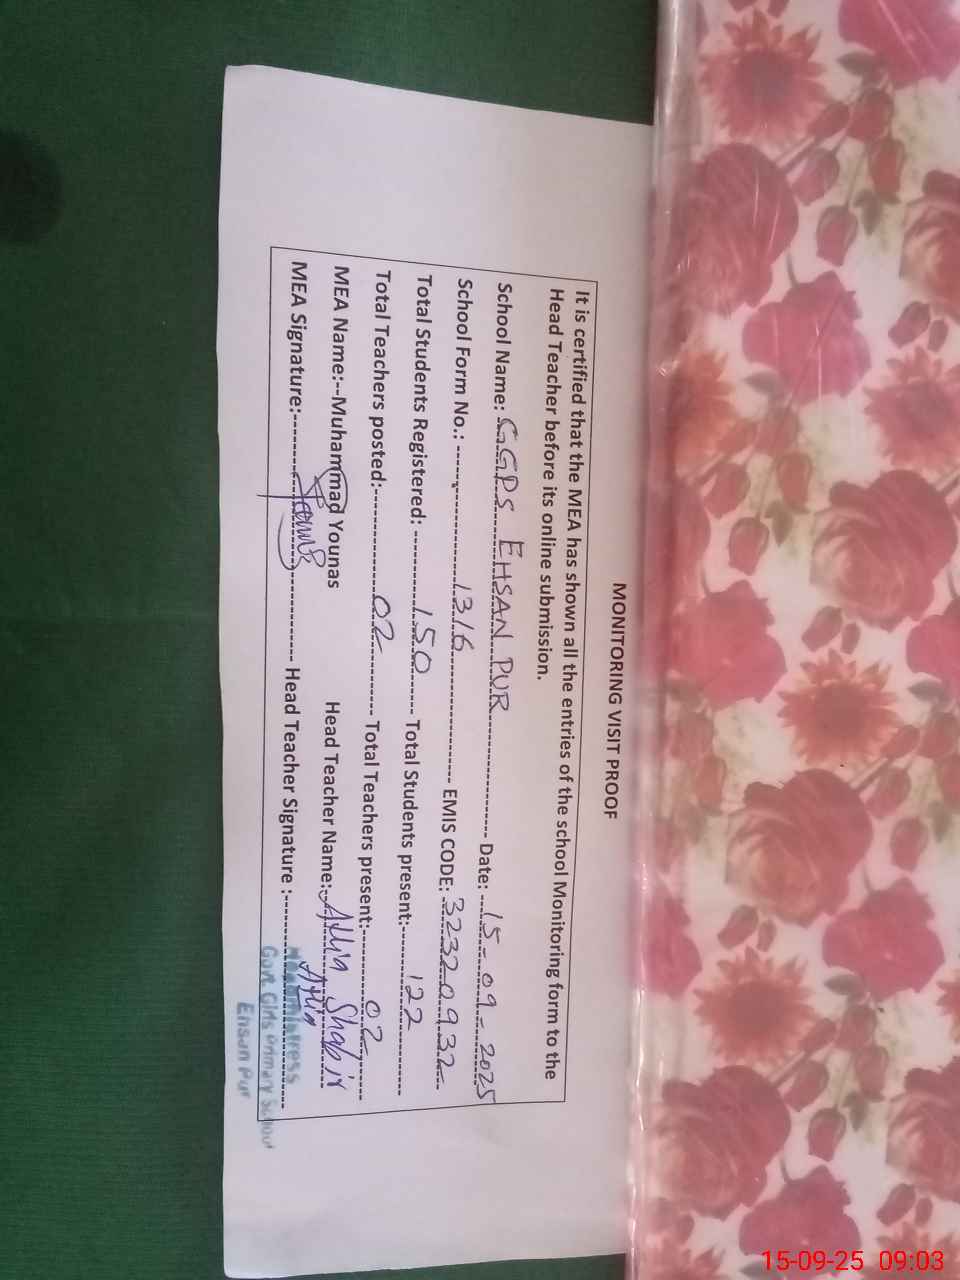 MONITORING VISIT PROOF
It is certified that the MEA has shown all the entries of the school Monitoring form to the
Head Teacher before its online submission.
School Name: GGPS EHSAN PUR Date: 15-09-2025
School Form No.: 1316 EMIS CODE: 32320932
Total Students Registered: 150 Total Students present: 122
Total Teachers posted: 02 Total Teachers present: 02
MEA Name:--Muhammad Younas Head Teacher Name: Attia Shabir
MEA Signature: Head Teacher Signature : Attia
Headmistress
Govt. Girls Primary School
Ehsan Pur
15-09-25 09:03